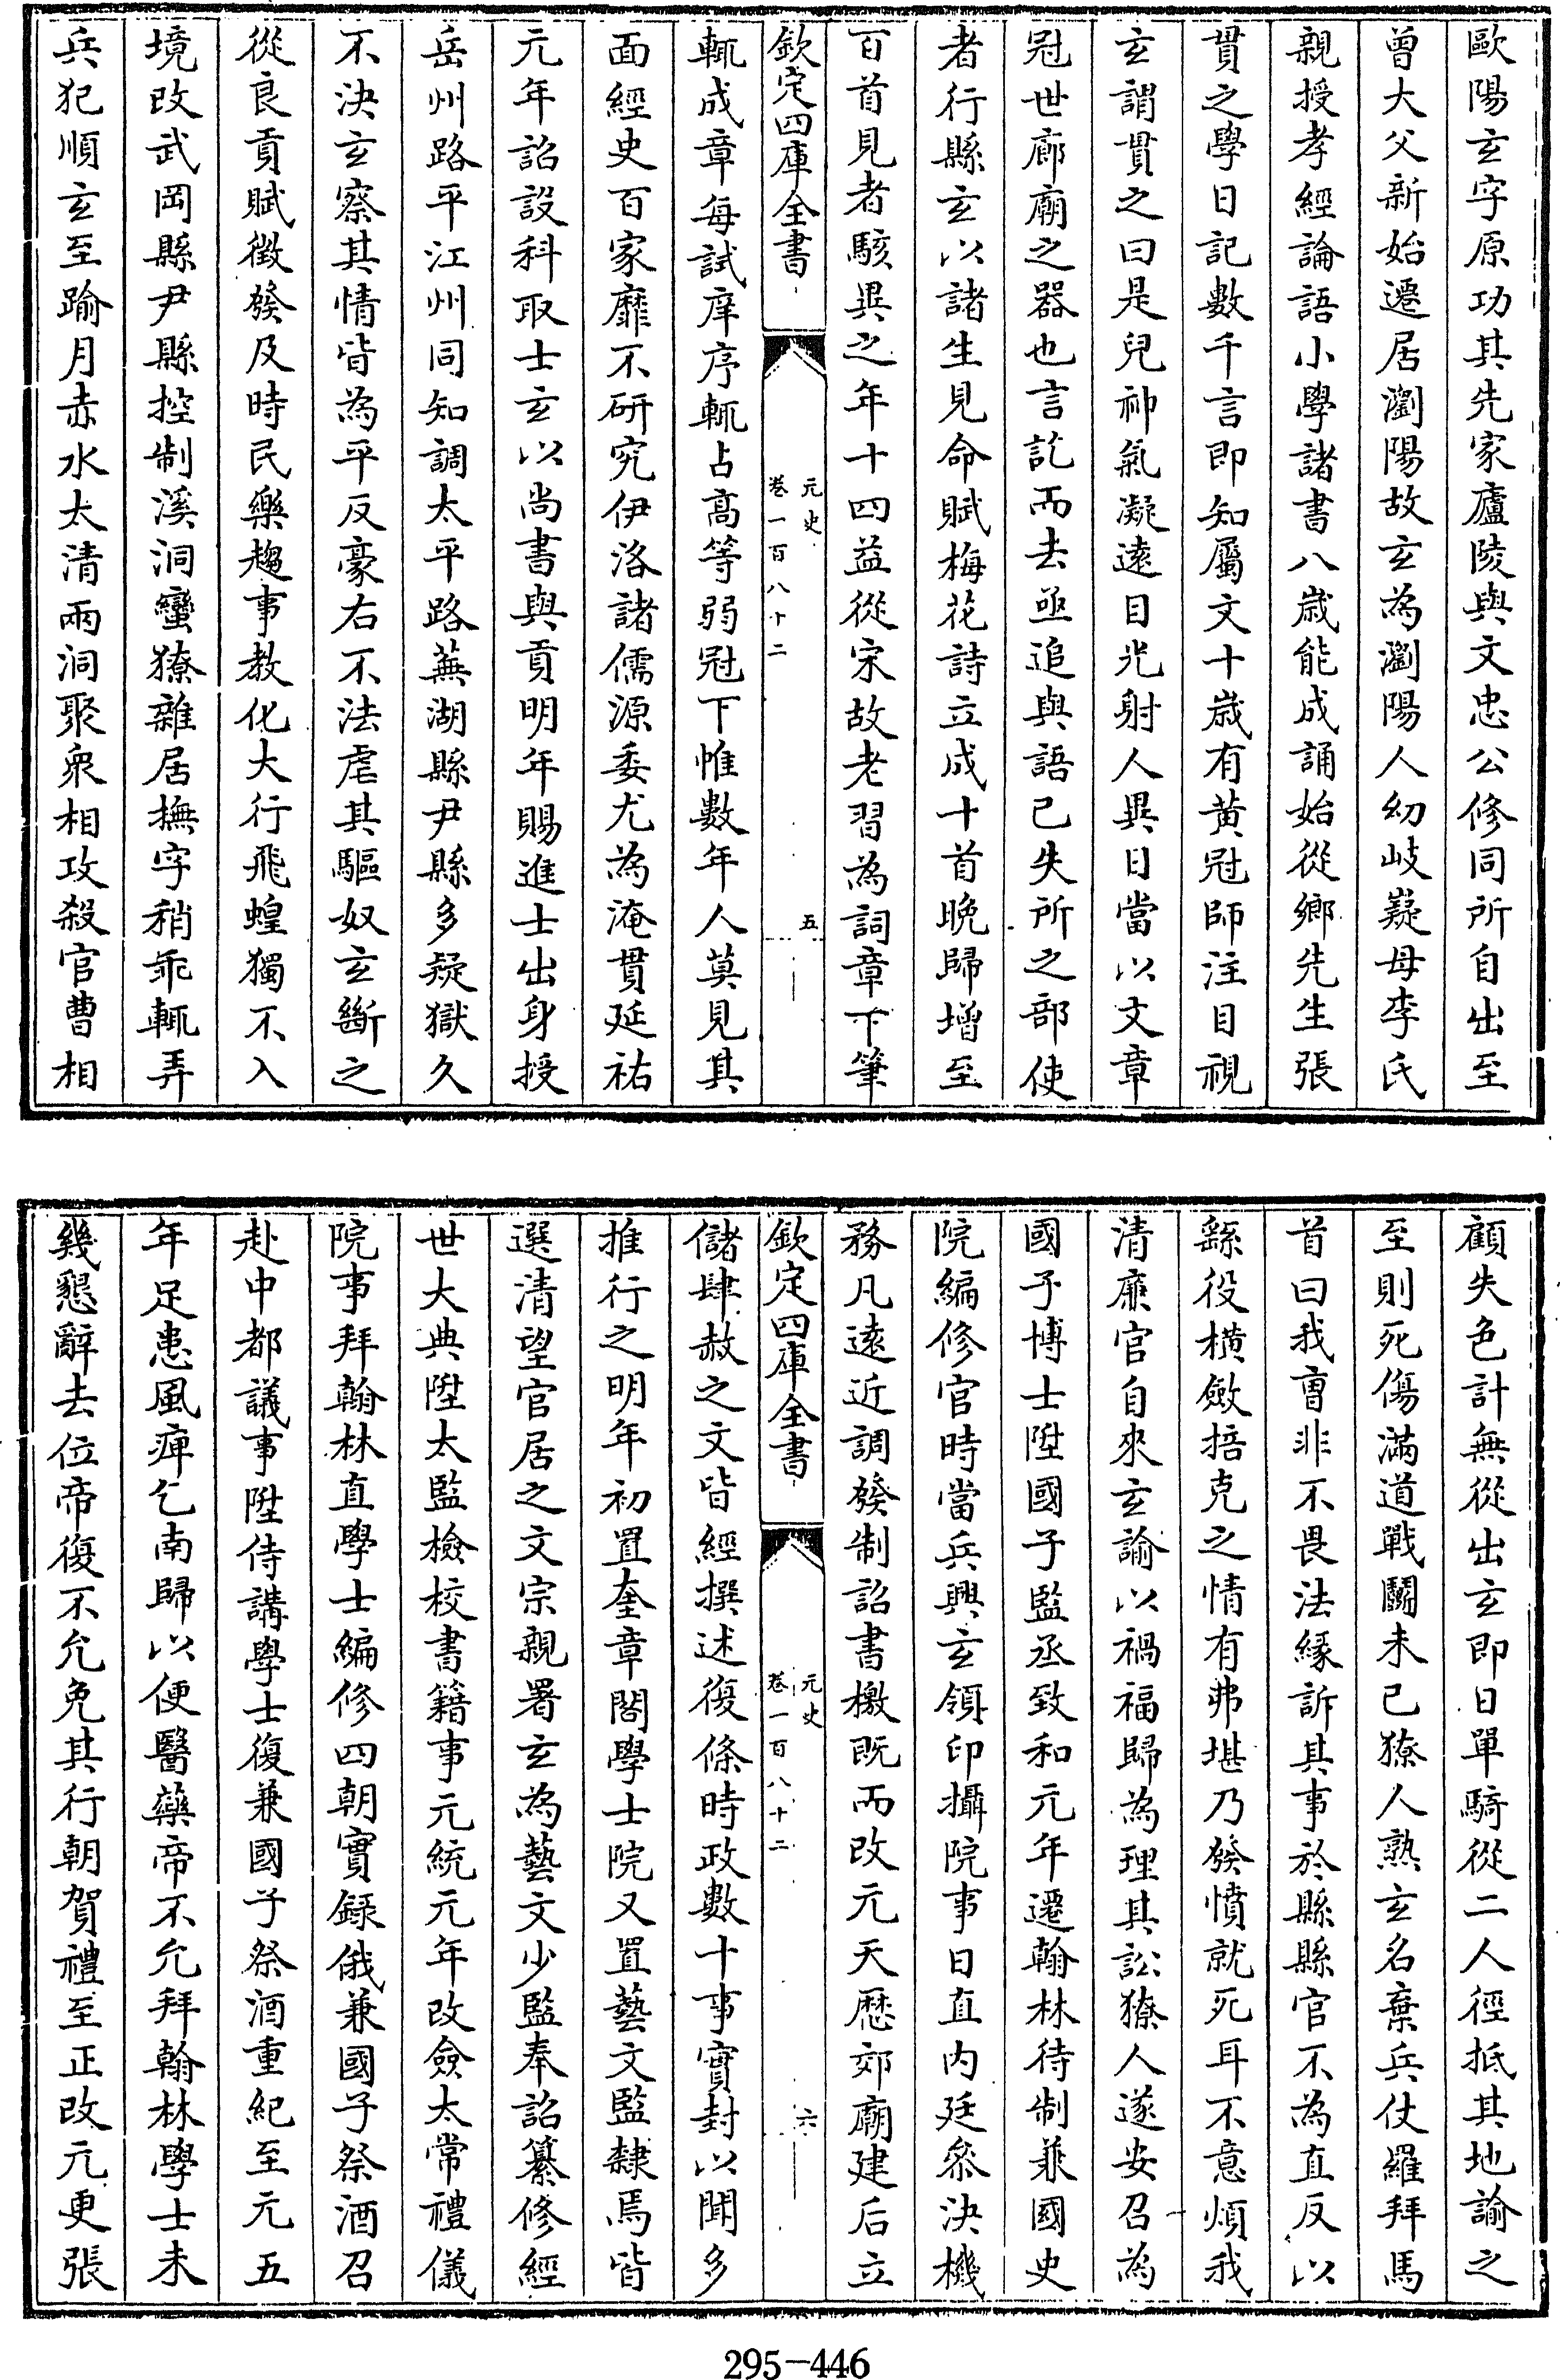 歐陽玄字原功其先家廬陵與文忠公修同所自出至
曾大父新始遷居瀏陽故玄為瀏陽人幼岐嶷母李氏
親授孝經論語小學諸書八歲能成誦始從鄉先生張
貫之學日記數千言即知屬文十歲有黃冠師注目視
玄謂貫之曰是兒神氣凝遠目光射人異日當以文章
冠世廊廟之器也言訖而去亟追與語已失所之部使
者行縣玄以諸生見命賦梅花詩立成十首晚歸增至
百首見者駭異之年十四益從宋故老習為詞章下筆
欽定四庫全書
元史
卷一百八十二
五
輒成章每試庠序輒占高等弱冠下帷數年人莫見其
面經史百家靡不研究伊洛諸儒源委尤為淹貫延祐
元年詔設科取士玄以尚書與貢明年賜進士出身授
岳州路平江州同知調太平路蕪湖縣尹縣多疑獄久
不決玄察其情皆為平反豪右不法虐其驅奴玄斷之
從良貢賦徵發及時民樂趨事教化大行飛蝗獨不入
境改武岡縣尹縣控制溪洞蠻獠雜居撫字稍乖輒弄
兵犯順玄至踰月赤水太清兩洞聚衆相攻殺官曹相
顧失色計無從出玄即日單騎從二人徑抵其地諭之
至則死傷滿道戰鬬未已獠人熟玄名棄兵仗羅拜馬
首曰我曹非不畏法緣訴其事於縣縣官不為直反以
繇役橫斂掊克之情有弗堪乃發憤就死耳不意煩我
清亷官自來玄諭以禍福歸為理其訟獠人遂安召為
國子博士陞國子監丞致和元年遷翰林待制兼國史
院編修官時當兵興玄領印攝院事日直內廷叅決機
務凡遠近調發制詔書檄既而改元天歷郊廟建后立
欽定四庫全書
元史
卷一百八十二
六
儲肆赦之文皆經撰述復條時政數十事實封以聞多
推行之明年初置奎章閣學士院又置藝文監隸焉皆
選清望官居之文宗親署玄為藝文少監奉詔纂修經
世大典陞太監檢校書籍事元統元年改僉太常禮儀
院事拜翰林直學士編修四朝實錄俄兼國子祭酒召
赴中都議事陞侍講學士復兼國子祭酒重紀至元五
年足患風痺乞南歸以便醫藥帝不允拜翰林學士未
幾懇辭去位帝復不允免其行朝賀禮至正改元更張
295-446